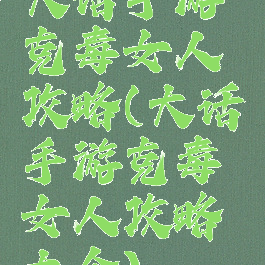 大话手游
克毒女人
攻略(大话
手游克毒
女人攻略
大全)